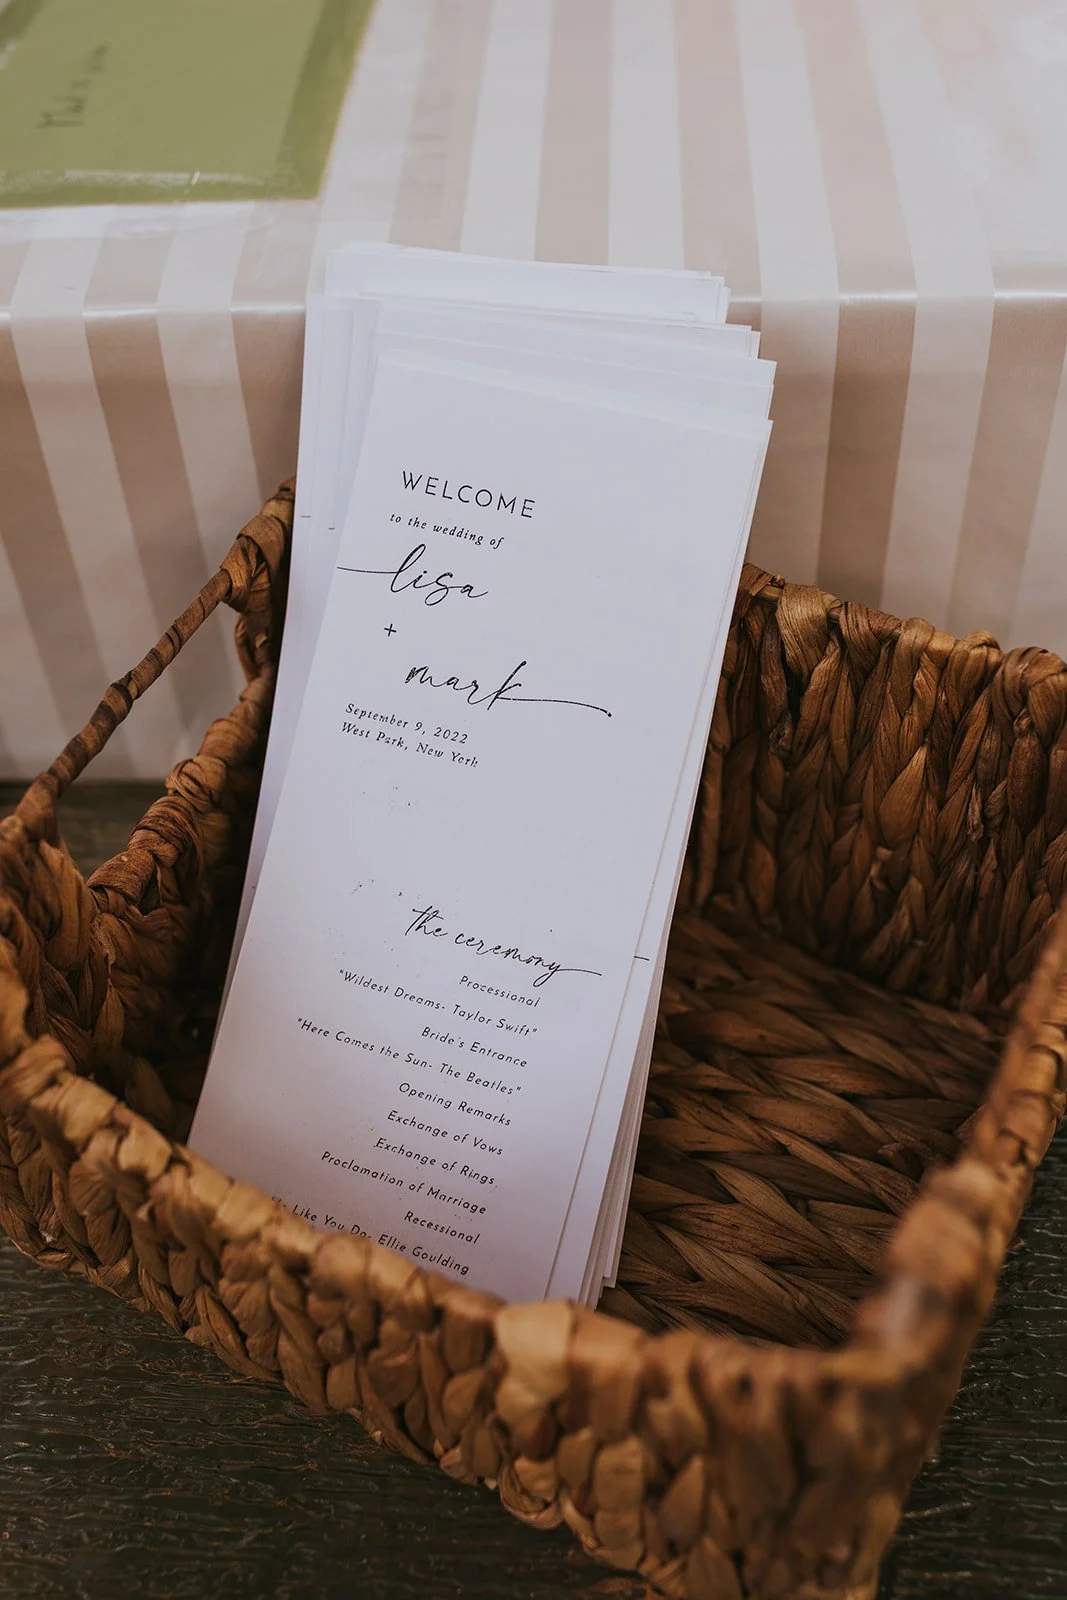 WELCOME
to the wedding of
lisa
+
mark
September 9, 2022
West Park, New York
the ceremony
Processional
"Wildest Dreams- Taylor Swift"
Bride's Entrance
"Here Comes the Sun- The Beatles"
Opening Remarks
Exchange of Vows
Exchange of Rings
Proclamation of Marriage
Recessional
Like You Do- Ellie Goulding